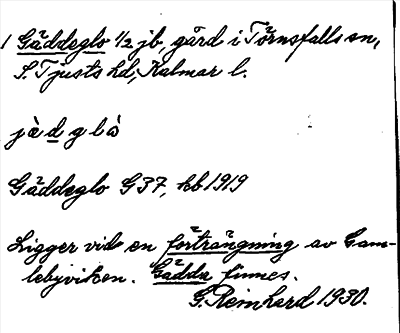 1 Gäddeglo 1/2 jb, gård i Törnsfalls sn,
S. Tjusts hd, Kalmar l.
jädglo
Gäddeglo G37, kb 1919
Ligger vid en förträngning av Gam-
lebyviken. Gädda finnes.
G. Reinhard 1930.